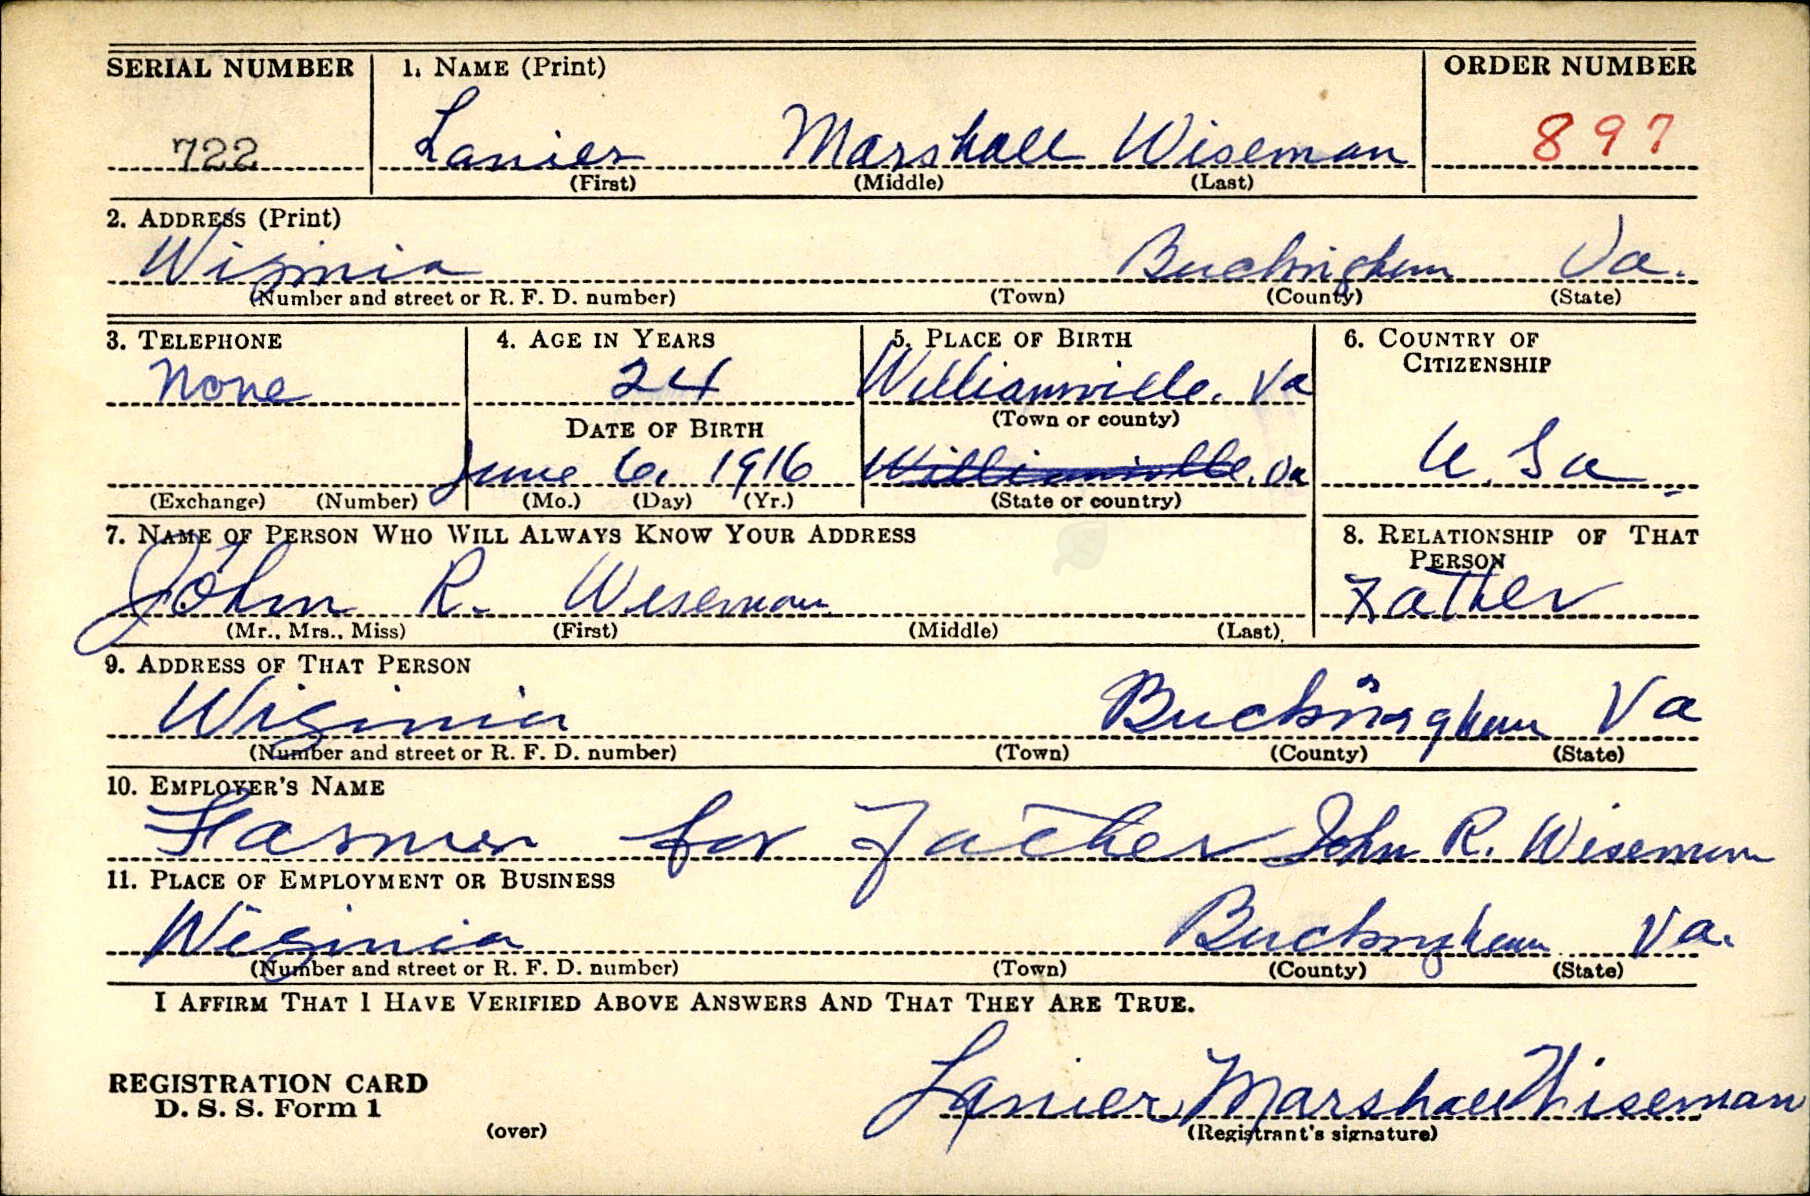 SERIAL NUMBER 1. NAME (Print) ORDER NUMBER
722 Lanier Marshall Wiseman 897
(First) (Middle) (Last)
2. ADDRESS (Print)
Wiginia Buckingham Va.
(Number and street or R. F. D. number) (Town) (County) (State)
3. TELEPHONE 4. AGE IN YEARS 5. PLACE OF BIRTH 6. COUNTRY OF CITIZENSHIP
None 24 Williamsville, Va
DATE OF BIRTH (Town or county)
June 6, 1916 Williamsville, Va U.S.a
(Exchange) (Number) (Mo.) (Day) (Yr.) (State or country)
7. NAME OF PERSON WHO WILL ALWAYS KNOW YOUR ADDRESS 8. RELATIONSHIP OF THAT PERSON
John R. Wiseman Father
(Mr., Mrs., Miss) (First) (Middle) (Last)
9. ADDRESS OF THAT PERSON
Wiginia Buckingham Va
(Number and street or R. F. D. number) (Town) (County) (State)
10. EMPLOYER'S NAME
Farmer for Father John R. Wiseman
11. PLACE OF EMPLOYMENT OR BUSINESS
Wiginia Buckingham Va.
(Number and street or R. F. D. number) (Town) (County) (State)
I AFFIRM THAT I HAVE VERIFIED ABOVE ANSWERS AND THAT THEY ARE TRUE.
REGISTRATION CARD
D. S. S. Form 1 Lanier Marshall Wiseman
(over) (Registrant's signature)